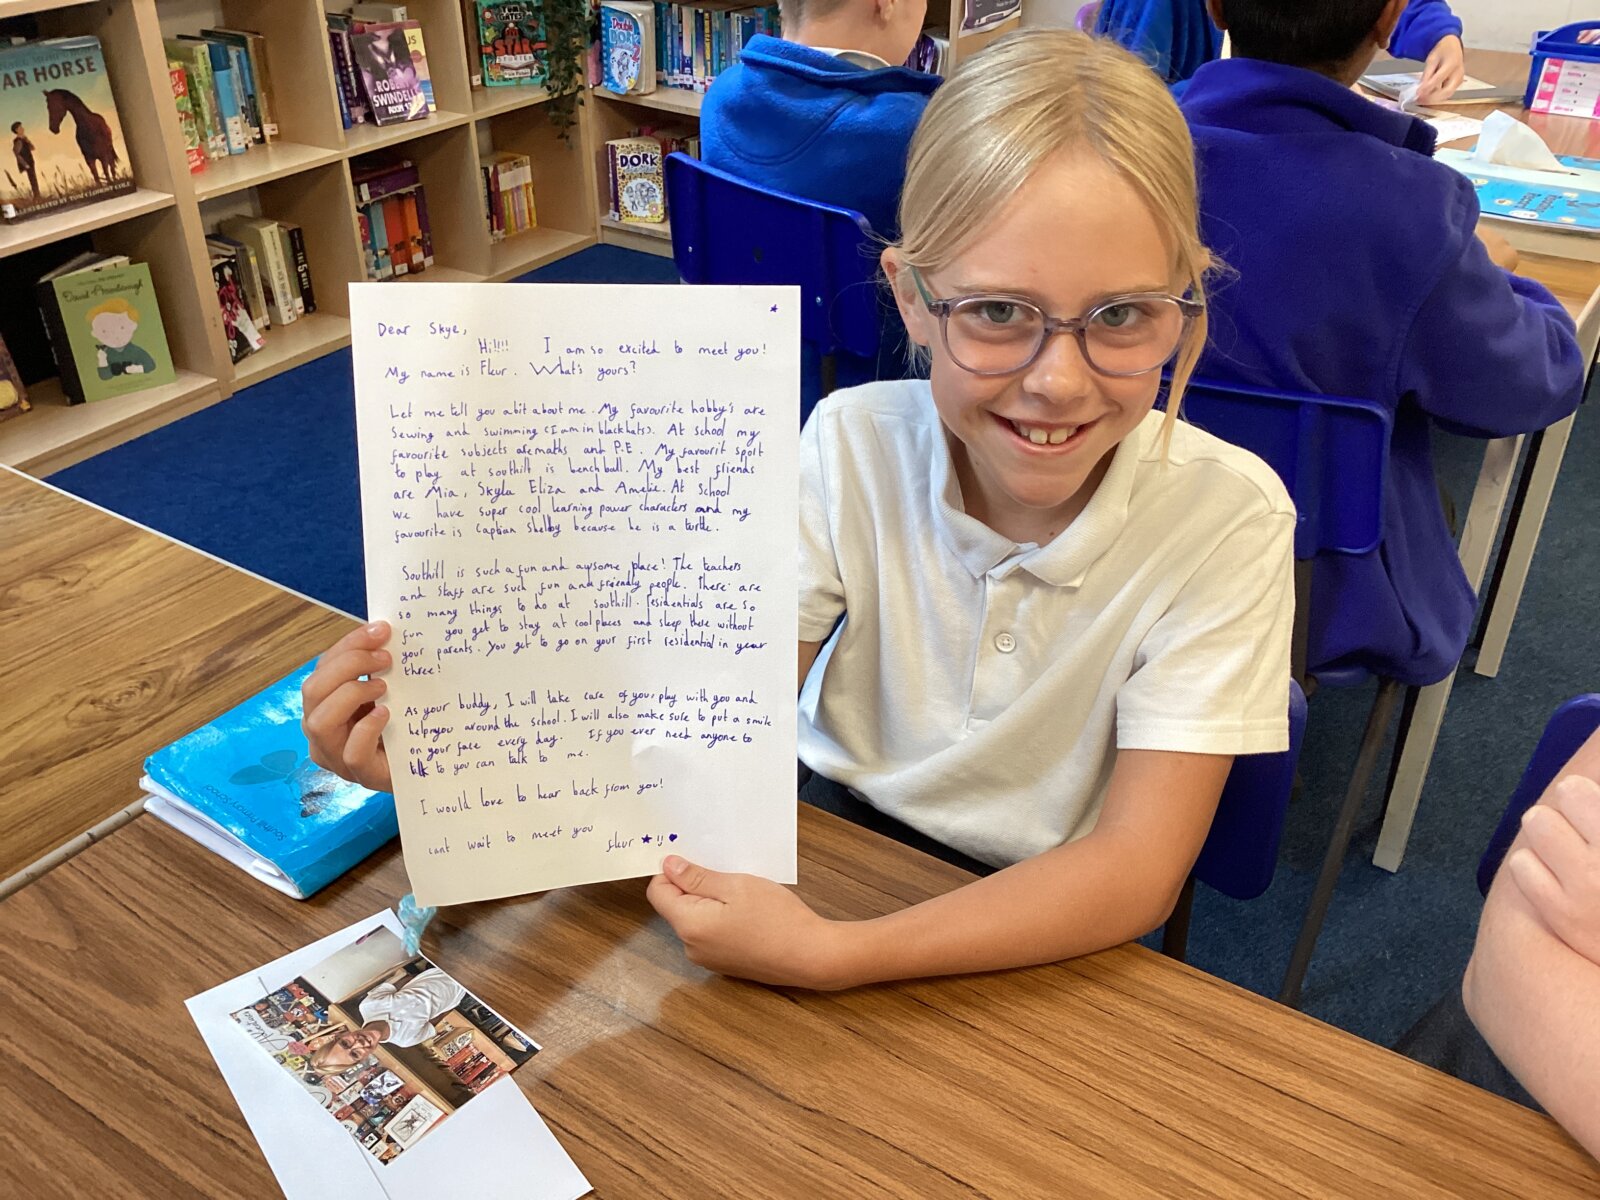 AR HORSE
ILLUSTRATED BY TOM CLOHOSY COLE
ROBERT
SWINDELLS
ROOM 13
TOM GATES
STORIES
Double
DORK
2
DORK
THE 5TH WAVE
David Attenborough
Dear Skye,
Hi!!!!! I am so excited to meet you!
My name is Fleur. What's yours?
Let me tell you a bit about me. My favourite hobby's are
sewing and swimming (I am in black hats). At school my
favourite subjects are maths and P.E. My favourit sport
to play at southill is bench ball. My best friends
are Mia, Skyla Eliza and Amelie. At School
we have super cool learning power characters and my
favourite is Captian Shelby because he is a turtle.
Southill is such a fun and awsome place! The teachers
and staff are such fun and friendly people. There are
so many things to do at southill. residentials are so
fun you get to stay at cool places and sleep there without
your parents. You get to go on your first residential in year
three!
As your buddy, I will take care of you, play with you and
help you around the school. I will also make sure to put a smile
on your face every day. If you ever need anyone to
talk to you can talk to me.
I would love to hear back from you!
cant wait to meet you
fleur
Southill Primary School